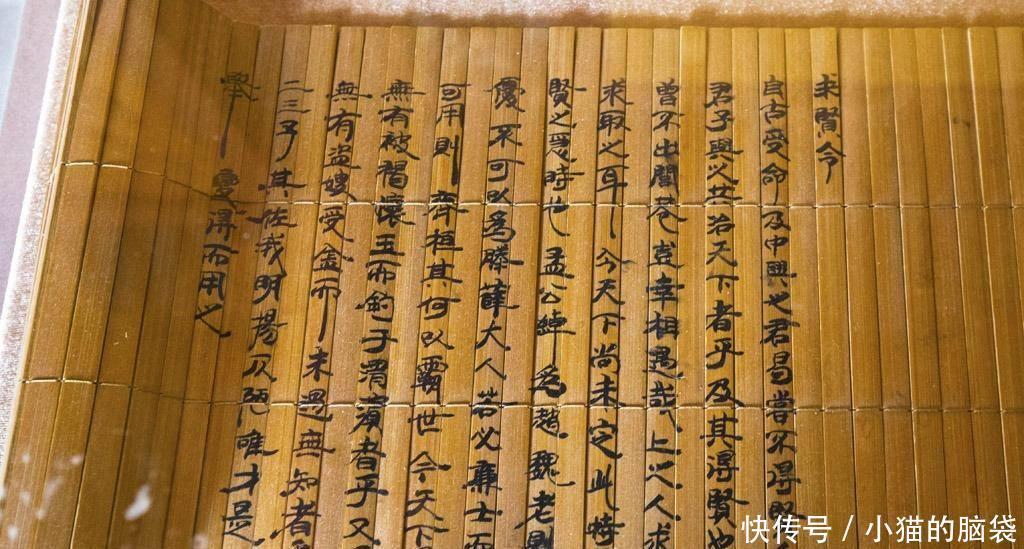 求賢令
自古受命及中興之君曷嘗不得賢
君子與之共治天下者乎及其得賢也
曾不出閭巷豈幸相遇哉、上之人求
求取之耳今天下尚未定此特
賢之急時也孟公綽為趙魏老則
優不可以為滕薛大人若必廉士而
可用則齊桓其何以霸世今天下
無有被褐懷玉而釣于渭濱者乎又
無有盜嫂受金而未遇無知者
二三子其佐我明揚仄陋唯才是
舉得而用之
快传号 / 小猫的脑袋